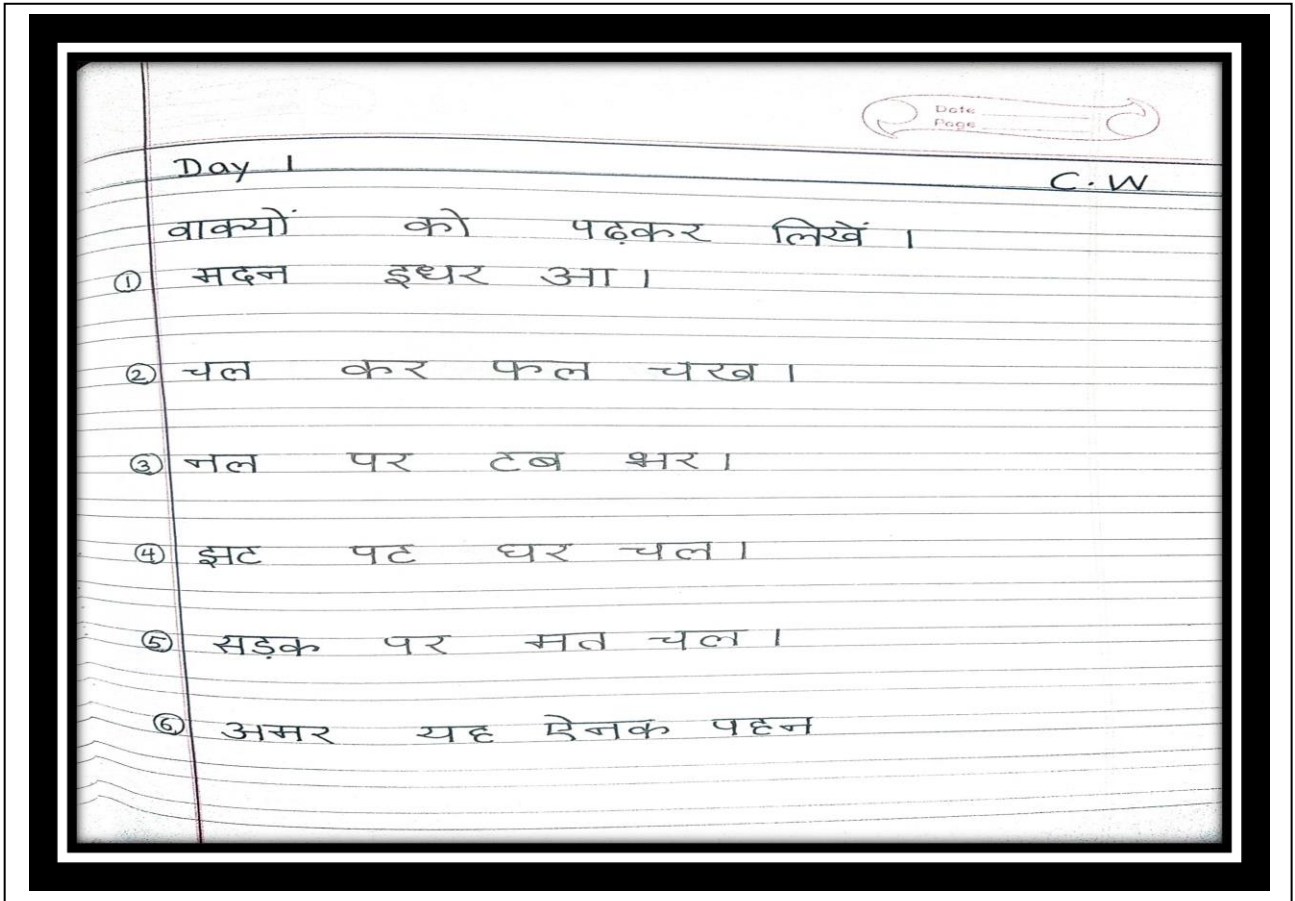 Date
Page
Day 1
C.W
वाक्यों को पढ़कर लिखें ।
① मदन इधर आ ।
② चल कर फल चख ।
③ नल पर टब भर ।
④ झट पट घर चल ।
⑤ सड़क पर मत चल ।
⑥ अमर यह ऐनक पहन